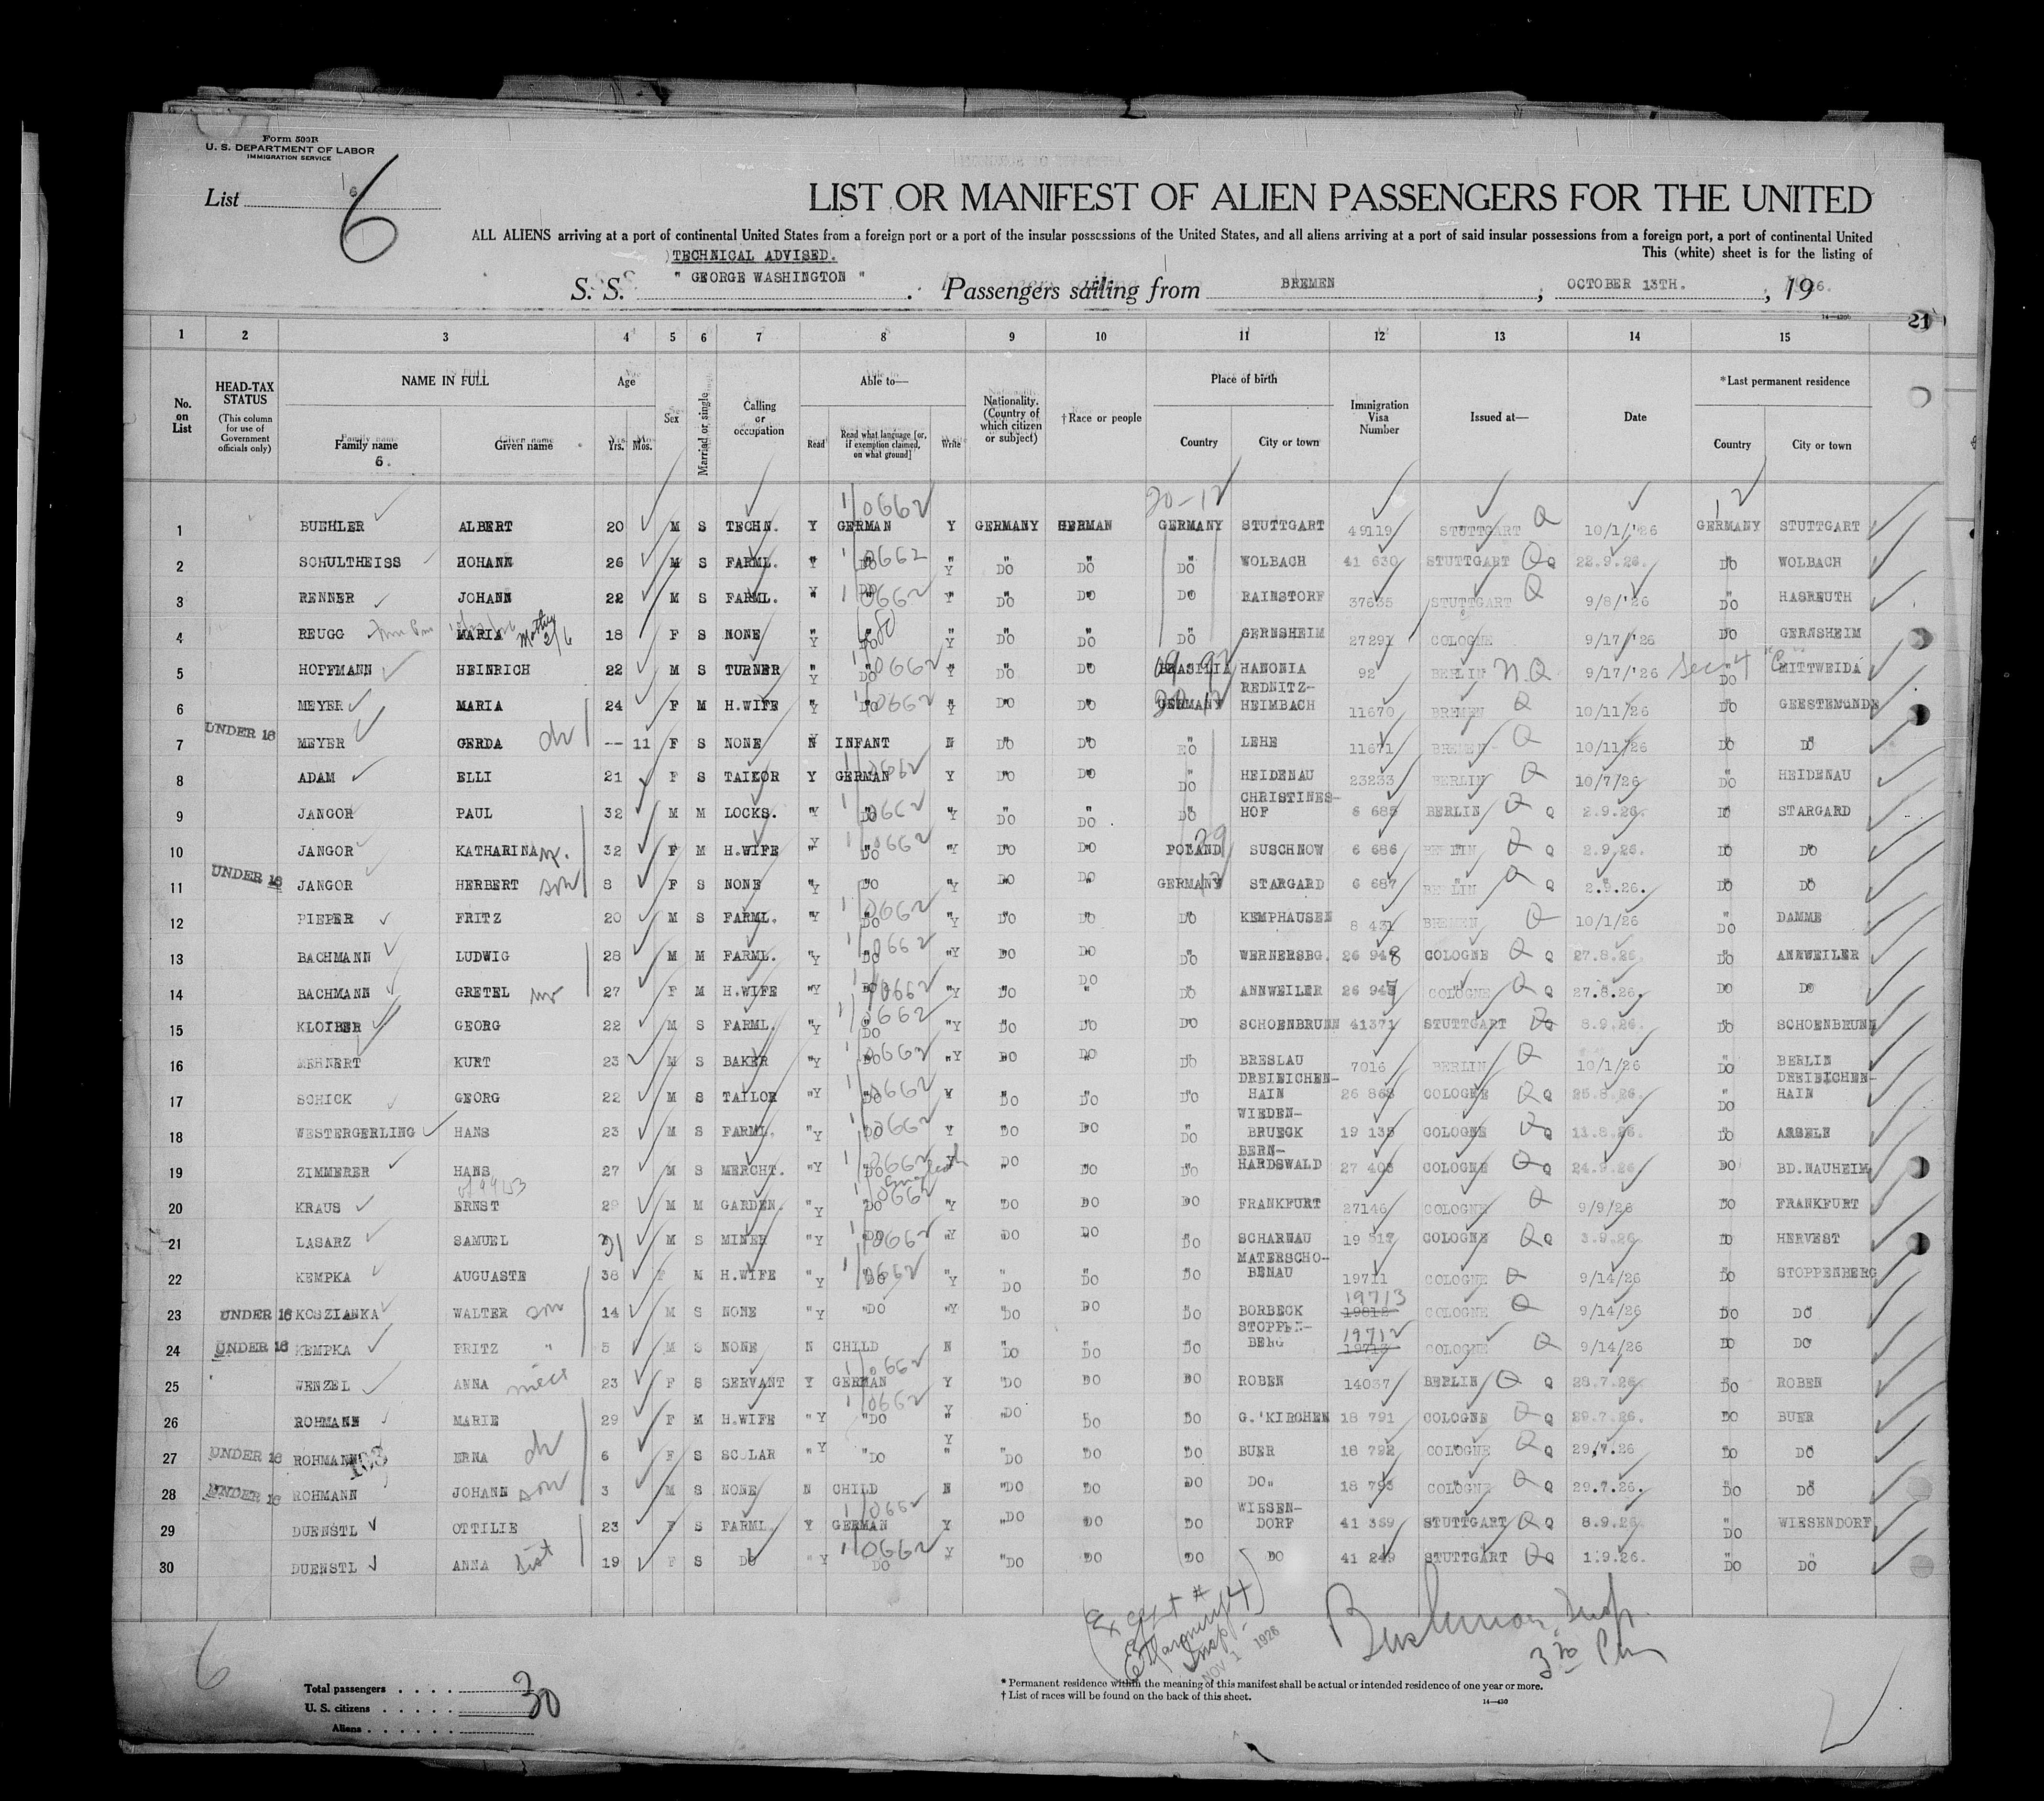 Form 500B
U. S. DEPARTMENT OF LABOR
IMMIGRATION SERVICE
List 6
6
LIST OR MANIFEST OF ALIEN PASSENGERS FOR THE UNITED
ALL ALIENS arriving at a port of continental United States from a foreign port or a port of the insular possessions of the United States, and all aliens arriving at a port of said insular possessions from a foreign port, a port of continental United
TECHNICAL ADVISED.
This (white) sheet is for the listing of
S. S. " GEORGE WASHINGTON " . Passengers sailing from BREMEN , OCTOBER 13TH. , 1926.
21
1 2 3 4 5 6 7 8 9 10 11 12 13 14 15
No. on List
HEAD-TAX STATUS
(This column for use of Government officials only)
NAME IN FULL
Family name
6.
Given name
Age
Yrs. Mos.
Sex
Married or single
Calling or occupation
Able to—
Read
Read what language [or, if exemption claimed, on what ground]
Write
Nationality. (Country of which citizen or subject)
†Race or people
Place of birth
Country
City or town
Immigration Visa Number
Issued at—
Date
*Last permanent residence
Country
City or town
1 BUEHLER ALBERT 20 M S TECHN. Y GERMAN Y GERMANY GERMAN GERMANY STUTTGART 49119 STUTTGART Q 10/1/'26 GERMANY STUTTGART
2 SCHULTHEISS HOHANN 26 M S FARML. " DO " DO DO DO WOLBACH 41 630 STUTTGART Q 22.9.26. DO WOLBACH
3 RENNER JOHANN 22 M S FARML. Y DO Y DO DO DO RAINSTORF 37635 STUTTGART Q 9/8/'26 DO HASREUTH
4 REUGG MARIA 18 F S NONE Y DO Y DO DO DO GERNSHEIM 27291 COLOGNE 9/17/'26 DO GERNSHEIM
5 HOFFMANN HEINRICH 22 M S TURNER Y DO Y DO DO BRASILIA HANONIA 92 BERLIN N.Q 9/17/'26 DO MITTWEIDA
6 MEYER MARIA 24 F M H.WIFE Y DO Y DO DO GERMANY REDNITZ-HEIMBACH 11670 BREMEN Q 10/11/26 DO GEESTEMUNDE
7 UNDER 16 MEYER GERDA -- 11 F S NONE N INFANT N DO DO DO LEHE 11671 BREMEN Q 10/11/26 DO DO
8 ADAM ELLI 21 F S TAIKOR Y GERMAN Y DO DO DO HEIDENAU 23233 BERLIN Q 10/7/26 DO HEIDENAU
9 JANGOR PAUL 32 M M LOCKS. "Y DO "Y DO DO DO CHRISTINES-HOF 6 685 BERLIN Q 2.9.26. DO STARGARD
10 JANGOR KATHARINA 32 F M H.WIFE Y DO "Y DO DO POLAND SUSCHNOW 6 686 BERLIN Q 2.9.26. DO DO
11 UNDER 16 JANGOR HERBERT son 8 F S NONE "Y DO "Y DO DO GERMANY STARGARD 6 687 BERLIN Q 2.9.26. DO DO
12 PIEPER FRITZ 20 M S FARML. "Y DO "Y DO DO DO KEMPHAUSEN 8 431 BREMEN Q 10/1/26 DO DAMME
13 BACHMANN LUDWIG 28 M M FARML. "Y DO "Y DO DO DO WERNERSBG. 26 948 COLOGNE Q 27.8.26. DO ANNWEILER
14 BACHMANN GRETEL 27 F M H.WIFE "Y DO "Y DO DO DO ANNWEILER 26 947 COLOGNE Q 27.8.26. DO DO
15 KLOIBER GEORG 22 M S FARML. "Y DO "Y DO DO DO SCHOENBRUNN 41371 STUTTGART 8.9.26. DO SCHOENBRUNN
16 MEHNERT KURT 23 M S BAKER "Y DO "Y DO DO DO BRESLAU 7016 BERLIN Q 10/1/26 DO BERLIN
17 SCHICK GEORG 22 M S TAILOR "Y DO Y DO DO DO DREIEICHEN-HAIN 26 868 COLOGNE Q 25.8.26. DO DREIEICHEN-HAIN
18 WESTERGERLING HANS 23 M S FARML. "Y DO Y DO DO DO WIEDEN-BRUECK 19 135 COLOGNE Q 13.8.26. DO ASSELN
19 ZIMMERER HANS 27 M S MERCHT. "Y DO Y DO DO DO BERN-HARDSWALD 27 408 COLOGNE Q 24.9.26 DO BD.NAUHEIM
20 KRAUS ERNST 29 M M GARDEN. "Y DO "Y DO DO DO FRANKFURT 27146 COLOGNE Q 9/9/26 DO FRANKFURT
21 LASARZ SAMUEL 21 M S MINER "Y DO "Y DO DO DO SCHARNAU 19 517 COLOGNE Q 3.9.26. DO HERVEST
22 KEMPKA AUGUASTE 38 F M H.WIFE "Y DO "Y DO DO DO MATERSCHO-BENAU 19711 COLOGNE Q 9/14/26 DO STOPPENBERG
23 UNDER 16 KOSZIANKA WALTER son 14 M S NONE "Y "DO "Y DO DO DO BORBECK 19713 COLOGNE Q 9/14/26 DO DO
24 UNDER 16 KEMPKA FRITZ " 5 M S NONE N CHILD N DO DO DO STOPPEN-BERG 19712 COLOGNE Q 9/14/26 DO DO
25 WENZEL ANNA niece 23 F S SERVANT Y GERMAN Y "DO DO DO ROBEN 14037 BERLIN Q 28.7.26. DO ROBEN
26 ROHMANN MARIE 29 F M H.WIFE "Y "DO Y "DO DO DO G.'KIRCHEN 18 791 COLOGNE Q 29.7.26. DO BUER
27 UNDER 16 ROHMANN ERNA 6 F S SCOLAR "Y "DO Y "DO DO DO BUER 18 792 COLOGNE Q 29.7.26 DO DO
28 UNDER 16 ROHMANN JOHANN son 3 M S NONE N CHILD N "DO DO DO DO" 18 793 COLOGNE Q 29.7.26. DO DO
29 DUENSTL OTTILIE 23 F S FARML. Y GERMAN Y "DO DO DO WIESEN-DORF 41 369 STUTTGART Q 8.9.26 DO WIESENDORF
30 DUENSTL ANNA sist 19 F S DO "Y DO Y "DO DO DO DO 41 249 STUTTGART 1.9.26. DO DO
NOV 1 1926
6
Total passengers . . . . 30
U. S. citizens . . . . .
Aliens . . . . . .
* Permanent residence within the meaning of this manifest shall be actual or intended residence of one year or more.
† List of races will be found on the back of this sheet.
14—430